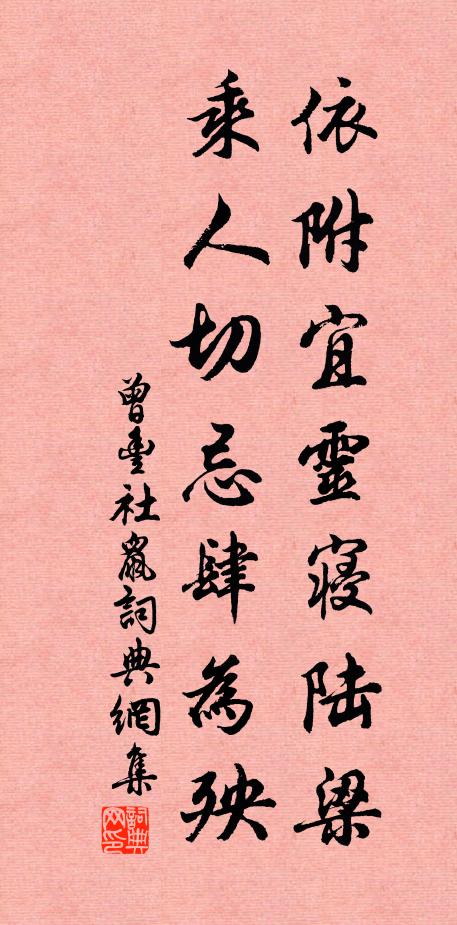 依附宜靈寢陆梁
乘人切忌肆為殃
曾豐社鼠詞典網集
詞典网印